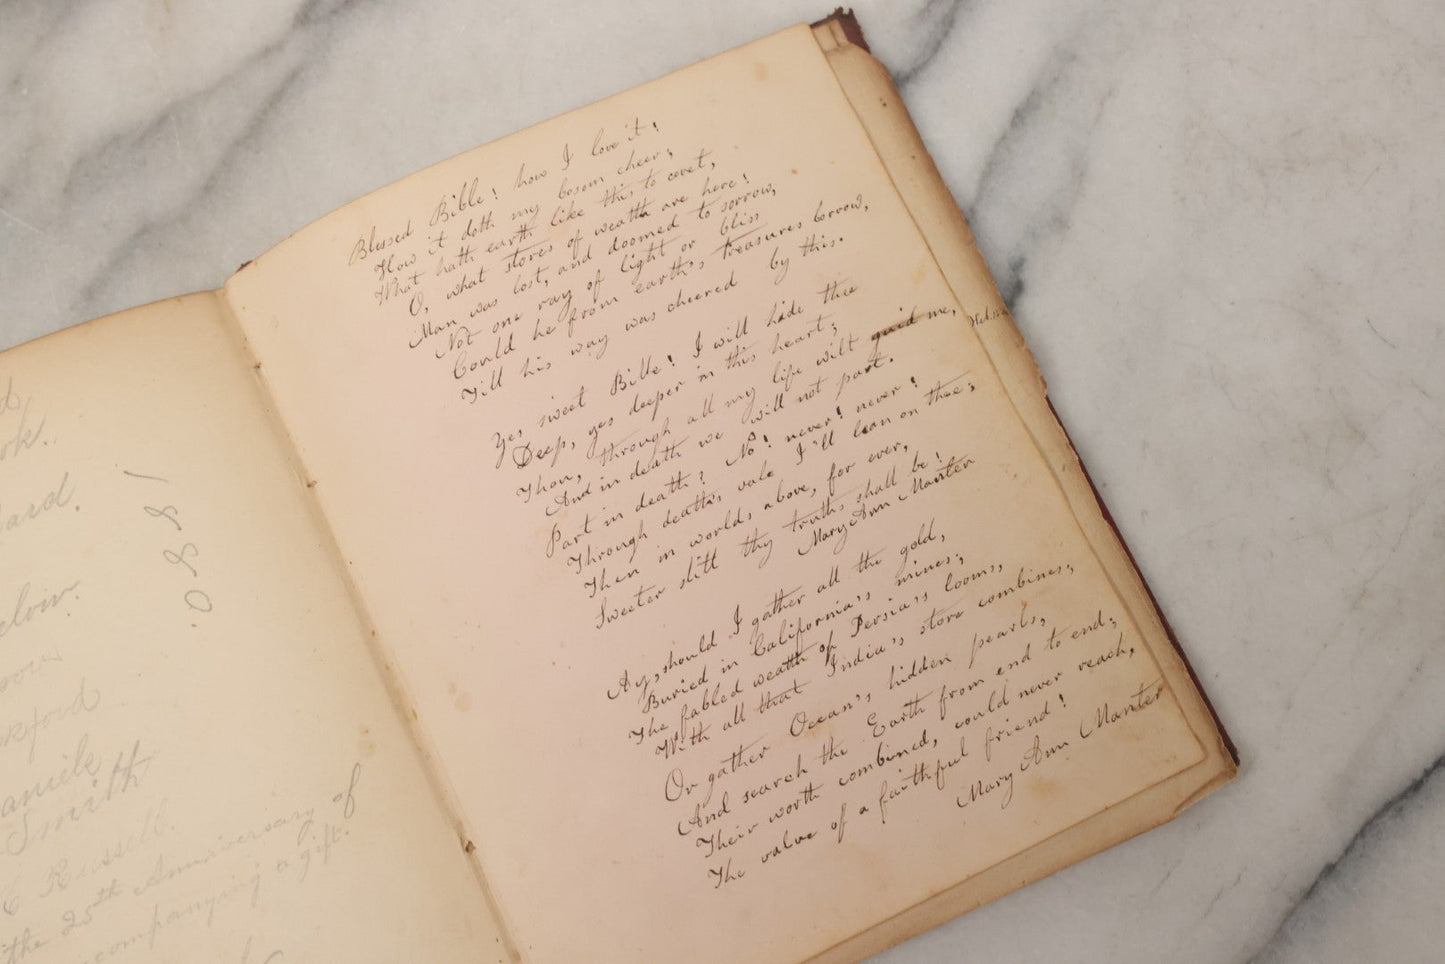 ok.
ard.
1880.
Smith
C Russell.
the 25th Anniversary of
accompanying a gift.
Blessed Bible! how I love it!
How it doth my bosom cheer;
What hath earth like this to covet,
O, what stores of wealth are here!
Man was lost, and doomed to sorrow,
Not one ray of light or bliss
Could he from earth's treasures borrow,
Till his way was cheered by this.
Yes sweet Bible! I will hide thee
Deep, yes deeper in this heart;
Thou, through all my life wilt guid me,
And in death we will not part.
Part in death? No! never! never!
Through death's vale I'll lean on thee;
Then in worlds above, for ever,
Sweeter still thy truths shall be!
Mary Ann Manter
Ay, should I gather all the gold,
Buried in California's mines;
The fabled wealth of Persia's looms,
With all that India's store combines;
Or gather Ocean's hidden pearls,
And search the Earth from end to end;
Their worth combined, could never reach,
The value of a faithful friend!
Mary Ann Manter